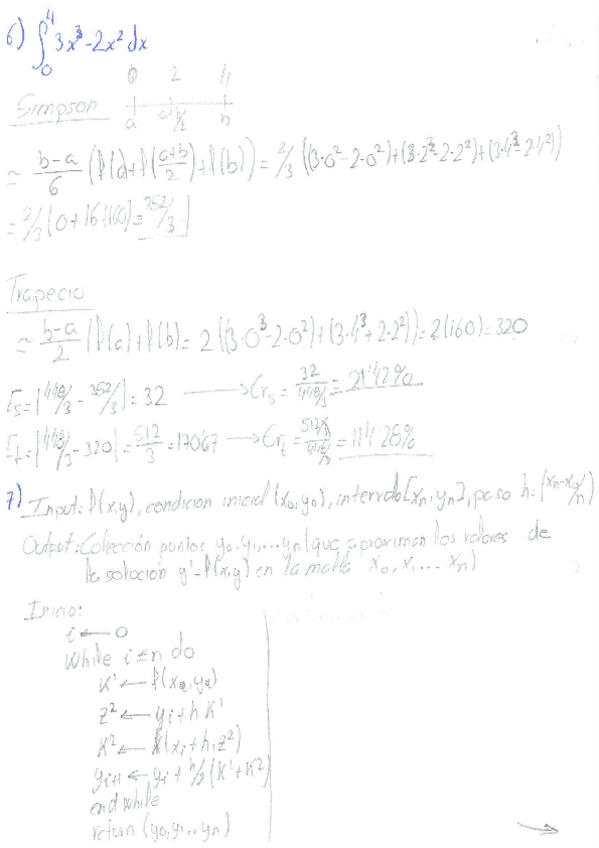 6) ∫₀⁴ 3x³-2x² dx
0 2 4
Simpson
a a+b/2 b
≈ b-a/6 (f(a)+f(a+b/2)+f(b)) = 2/3 ((3·0²-2·0²)+(3·2³-2·2²)+(3·4³-2·4²))
= 2/3 (0+16+160) = 352/3
Trapecio
≈ b-a/2 (f(a)+f(b) = 2 ((3·0³-2·0²)+(3·4³+2·2²)) = 2(160) = 320
Es = |448/3 - 352/3| = 32 → Ers = 32/448/3 = 21'42%
Et = |448/3 - 320| = 512/3 = 170'67 → Ert = 512/3/448/3 = 114'28%
7) Input: f(x,y), condición inicial (x₀,y₀), intervalo [xn,yn], paso h=(xn-x₀/n)
Output: Colección puntos y₀,y₁...yn (que aproximan los valores de
la solución y'=f(x,y) en la malla x₀,x₁...xn)
Inicio:
i ← 0
while i ≤ n do
K¹ ← f(x₀,y₀)
z² ← yi+hK¹
K² ← f(xi+h,z²)
yi+1 ← yi + h/2 (K¹+K²)
end while
return (y₀,y₁...yn)